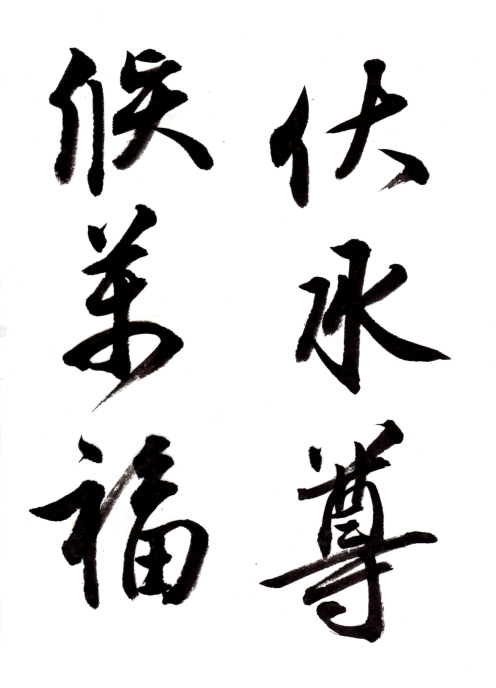 伏承尊
候萬福